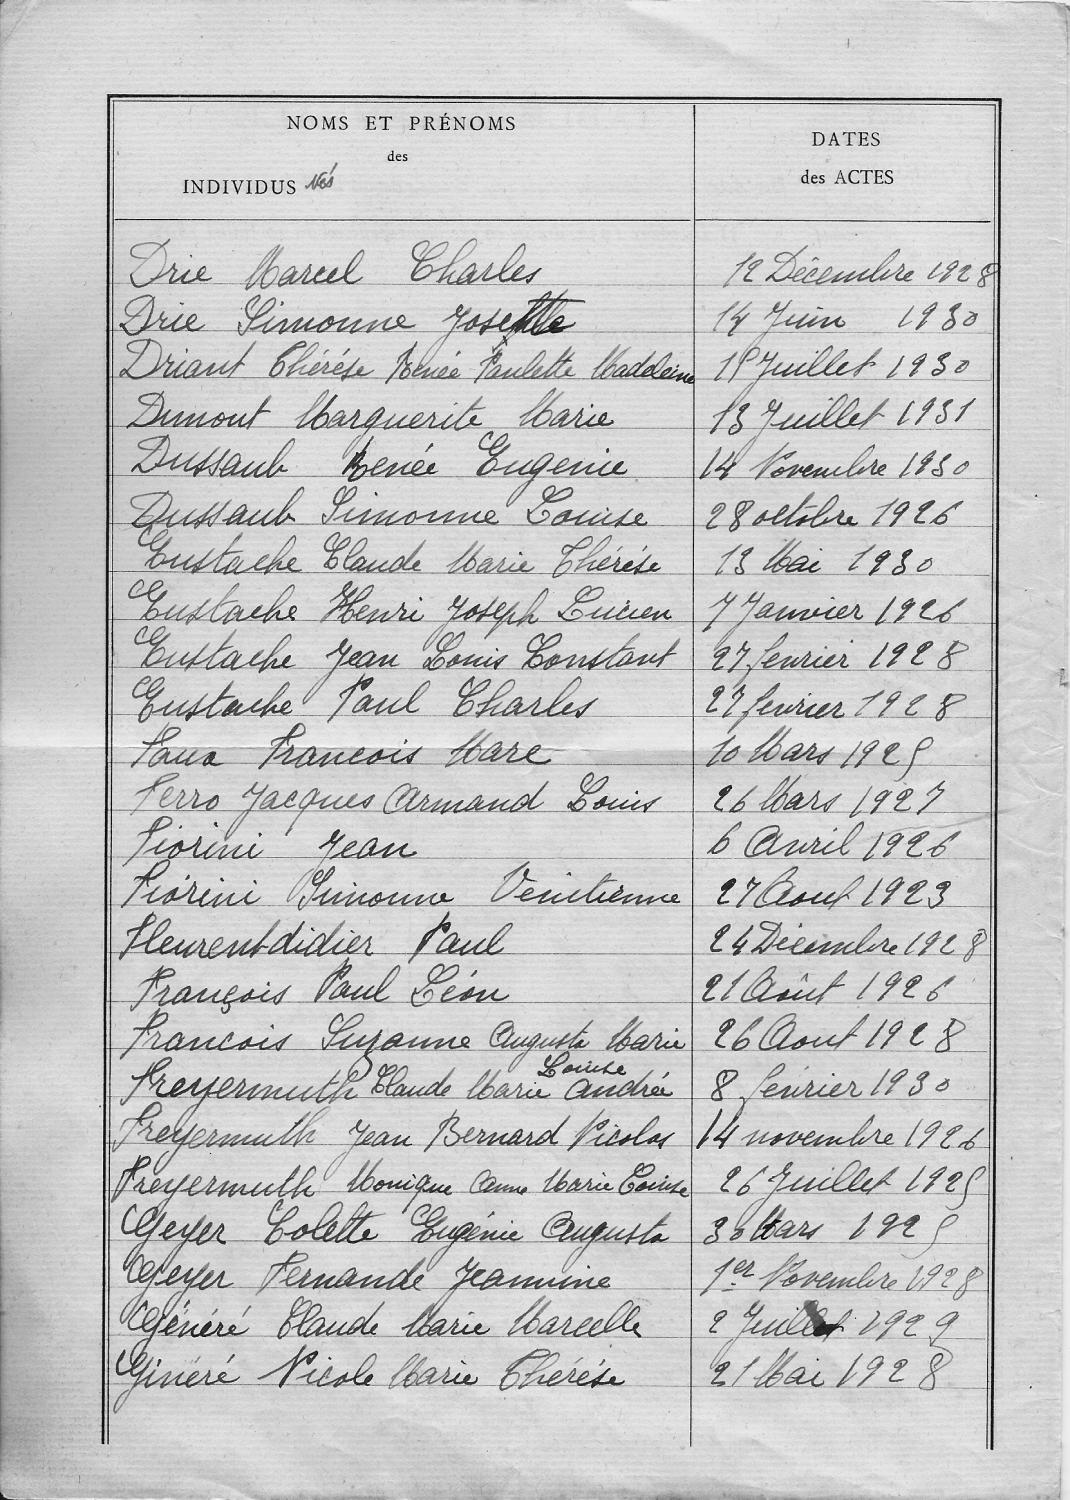 NOMS ET PRÉNOMS
des
INDIVIDUS Nés
DATES
des ACTES
Drie Marcel Charles 12 Décembre 1928
Drie Simonne Josette 14 Juin 1930
Driant Thérése Renée Paulette Madeleine 15 Juillet 1930
Dumont Marguerite Marie 13 Juillet 1931
Dussaub Renée Eugenie 14 Novembre 1930
Dussaub Simonne Louise 28 octobre 1926
Eustache Claude Marie Thérése 13 Mai 1930
Eustache Henri Joseph Lucien 7 Janvier 1926
Eustache Jean Louis Constant 27 fevrier 1928
Eustache Paul Charles 27 fevrier 1928
Faux Francois Marc 10 Mars 1925
Ferro Jacques Armand Louis 26 Mars 1927
Fiorini Jean 6 Avril 1926
Fiorini Simonne Venitienne 27 Aout 1923
Fleurent-didier Paul 24 Décembre 1928
François Paul Léon 21 Août 1926
Francois Suzanne Augusta Marie 26 Aout 1928
Louise
Freyermuth Claude Marie Andrée 8 février 1930
Freyermuth Jean Bernard Nicolas 14 novembre 1926
Freyermuth Monique Anne Marie Louise 26 Juillet 1925
Geyer Colette Eugénie Augusta 30 Mars 1925
Geyer Fernande Jeannine 1er Novembre 1928
Généré Claude Marie Marcelle 2 Juillet 1929
Généré Nicole Marie Thérése 21 Mai 1928